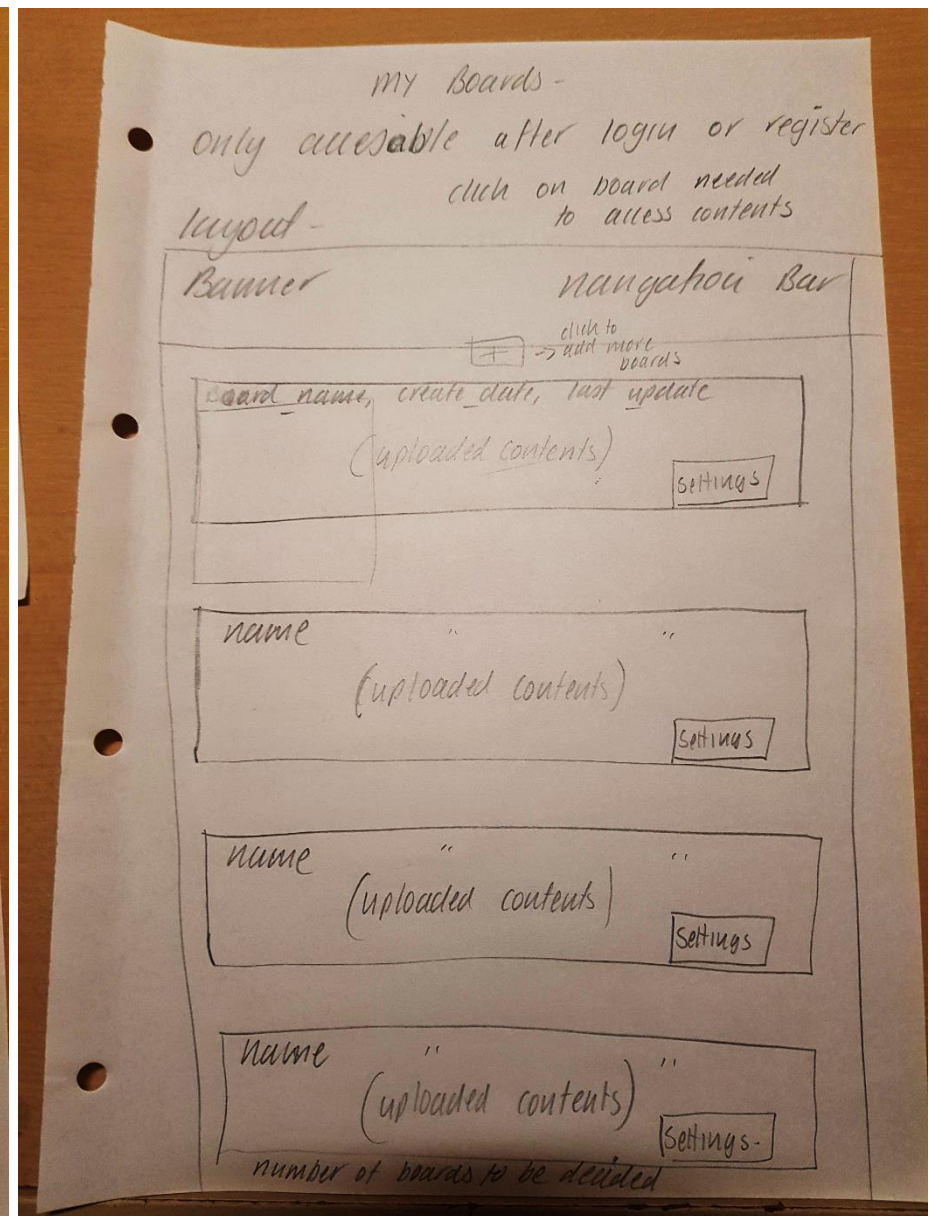 My Boards -
only accesable after login or register
click on board needed
to access contents
layout -
Banner
navigation Bar
+ -> click to
add more
boards
Board_name, create_date, last update
(uploaded contents)
Settings
name " "
(uploaded contents)
Settings
name " "
(uploaded contents)
Settings
name " "
(uploaded contents)
Settings-
number of boards to be decided